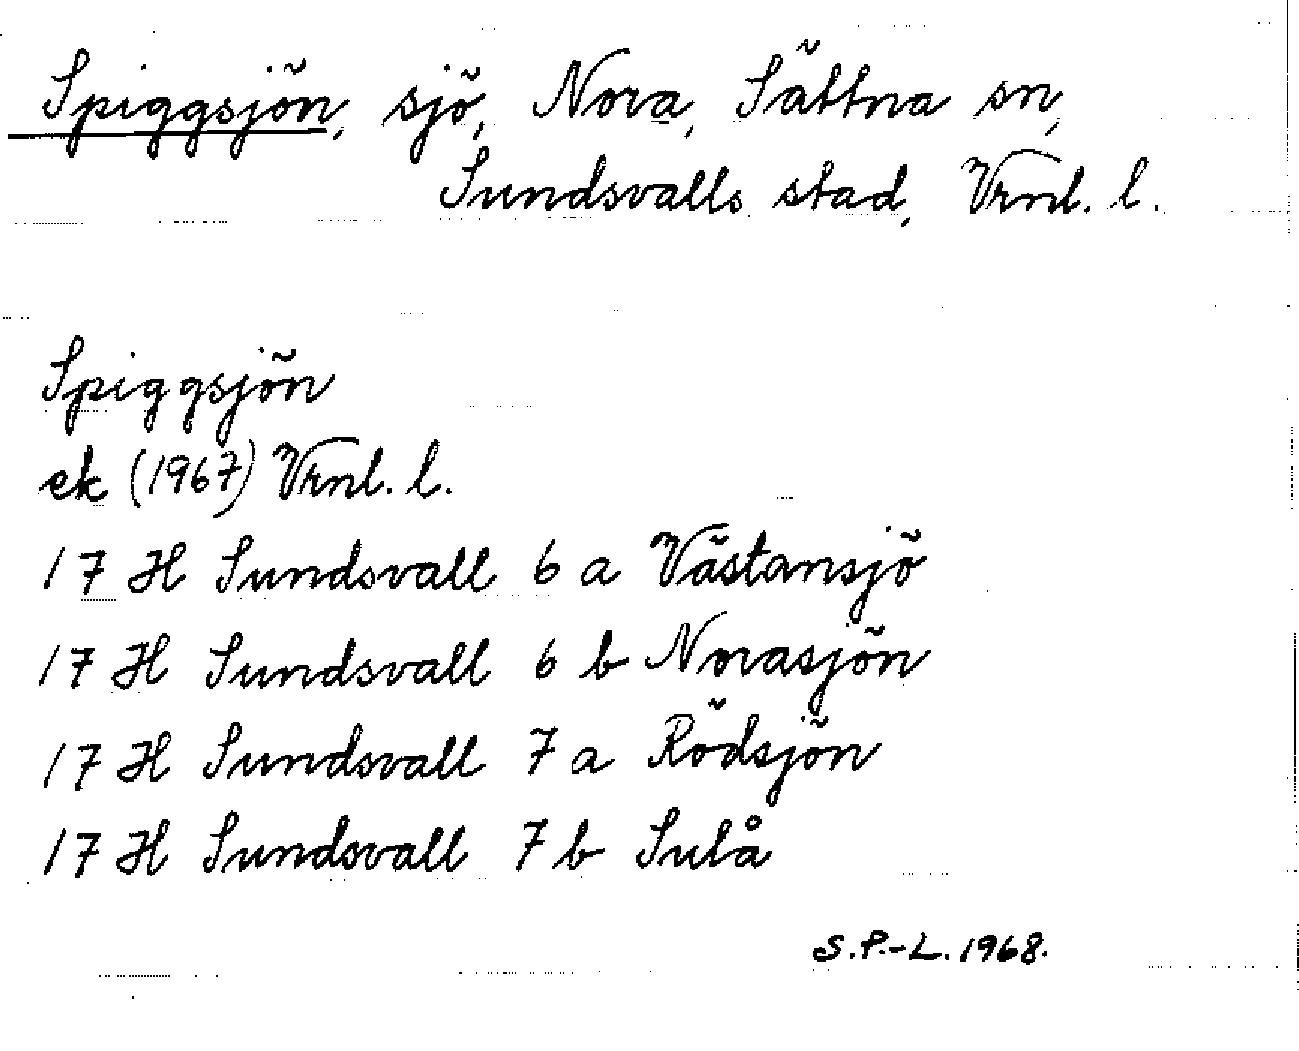 Spiggsjön, sjö, Nora, Sättna sn,
Sundsvalls stad, Vrnl. l.
Spiggsjön
ek (1967) Vrnl. l.
17 H Sundsvall 6 a Västansjö
17 H Sundsvall 6 b Norasjön
17 H Sundsvall 7 a Rödsjön
17 H Sundsvall 7 b Sulå
S.P.-L. 1968.